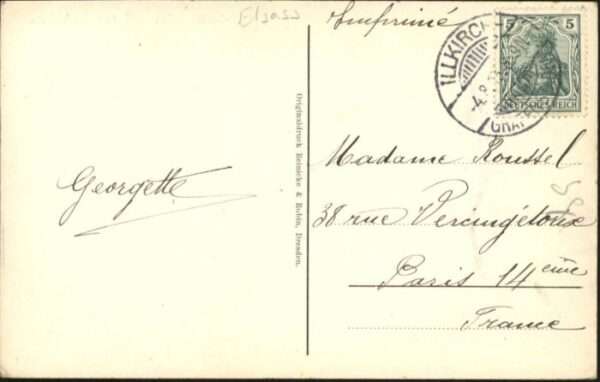 Elsass
Imprimé
5 5
DEUTSCHES REICH
ILLKIRCH
-4.8.
GRAF
Originaldruck Reinicke & Rubin, Dresden.
Georgette
Madame Roussel
38 rue Vercingétorix
Paris 14ème
France